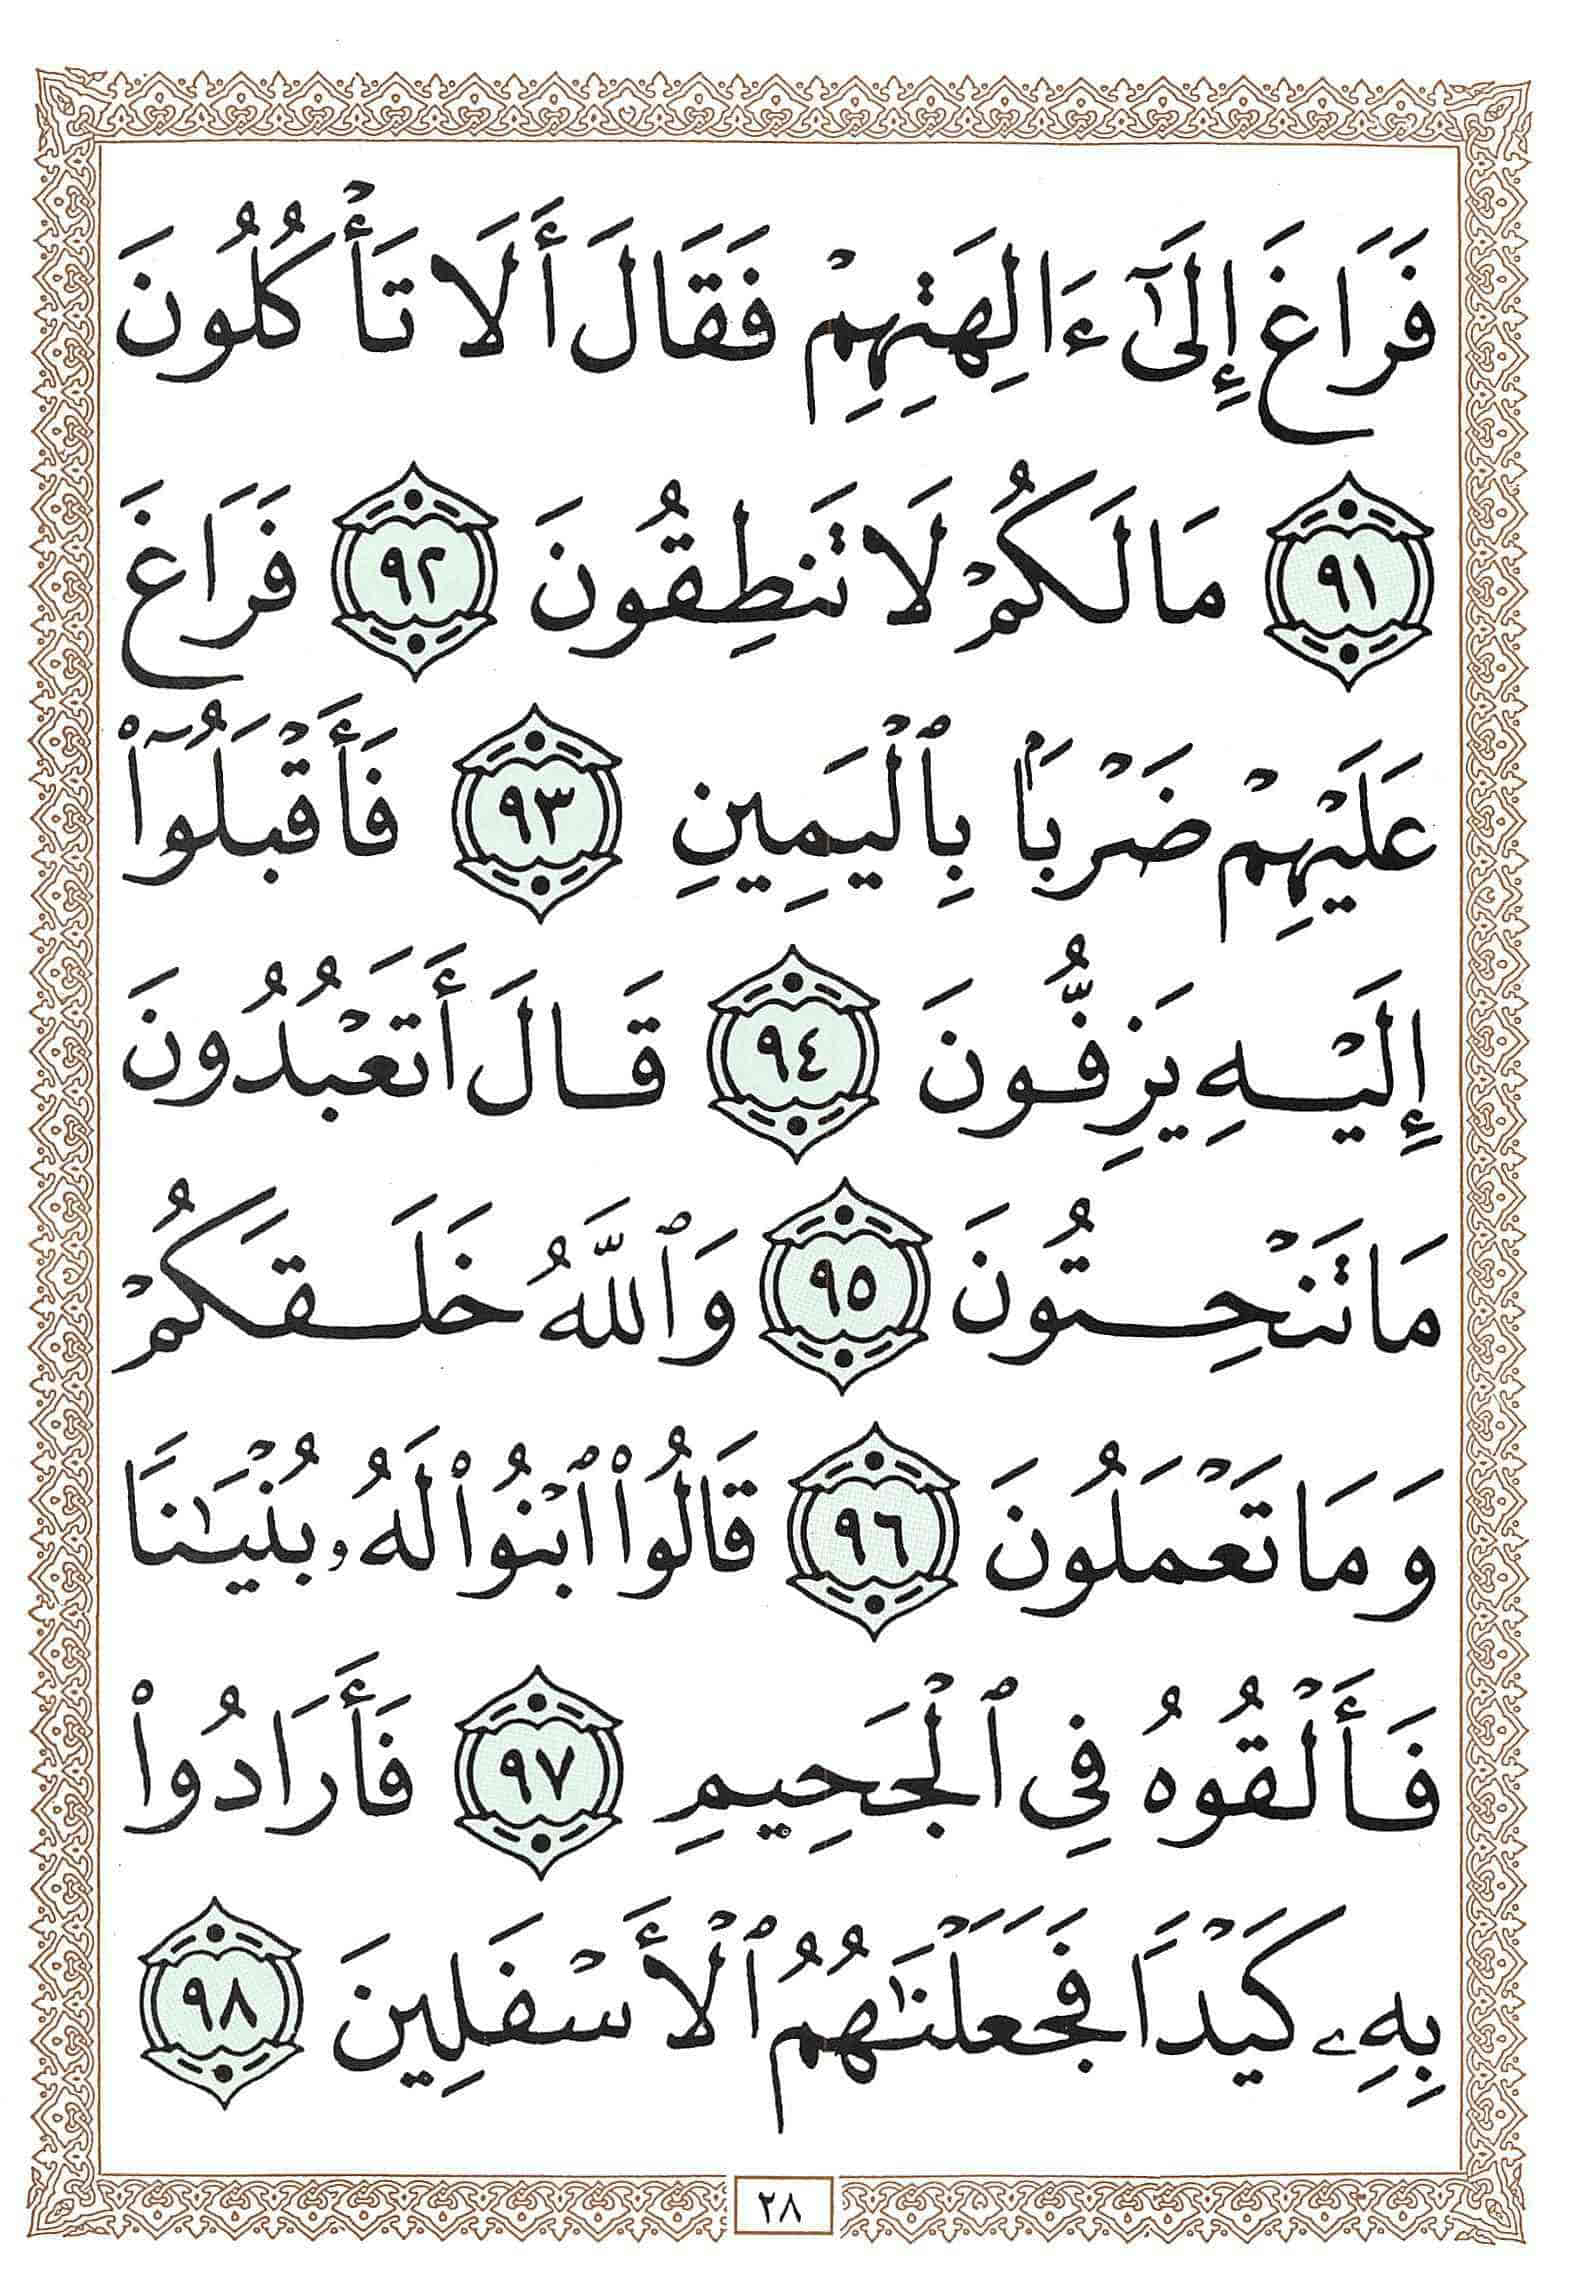 فَرَاغَ إِلَىٰٓ ءَالِهَتِهِمْ فَقَالَ أَلَا تَأْكُلُونَ
٩١ مَا لَكُمْ لَا تَنطِقُونَ ٩٢ فَرَاغَ
عَلَيْهِمْ ضَرْبَۢا بِٱلْيَمِينِ ٩٣ فَأَقْبَلُوٓا۟
إِلَيْهِ يَزِفُّونَ ٩٤ قَالَ أَتَعْبُدُونَ
مَا تَنْحِتُونَ ٩٥ وَٱللَّهُ خَلَقَكُمْ
وَمَا تَعْمَلُونَ ٩٦ قَالُوا۟ ٱبْنُوا۟ لَهُۥ بُنْيَـٰنًا
فَأَلْقُوهُ فِى ٱلْجَحِيمِ ٩٧ فَأَرَادُوا۟
بِهِۦ كَيْدًا فَجَعَلْنَـٰهُمُ ٱلْأَسْفَلِينَ ٩٨
٢٨